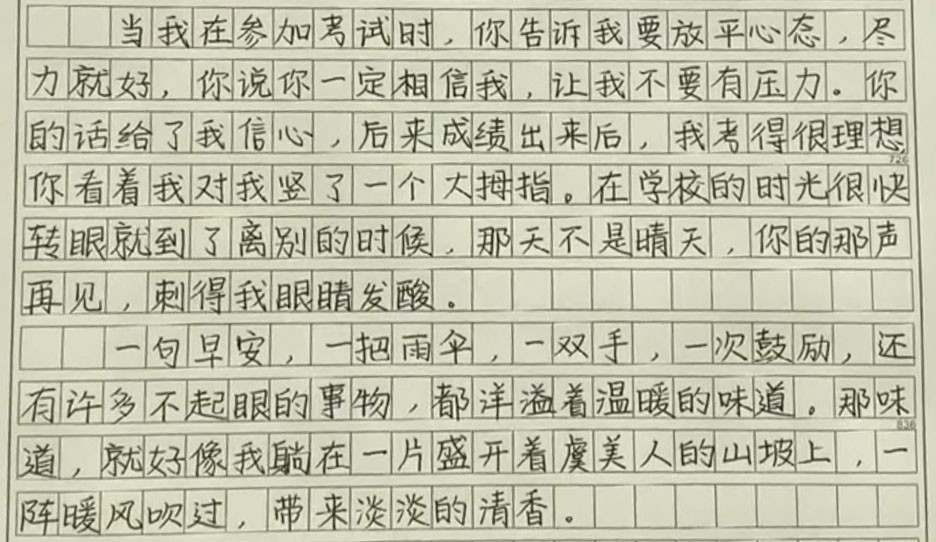 当我在参加考试时，你告诉我要放平心态，尽
力就好，你说你一定相信我，让我不要有压力。你
的话给了我信心，后来成绩出来后，我考得很理想
726
你看着我对我竖了一个大拇指。在学校的时光很快
转眼就到了离别的时候，那天不是晴天，你的那声
再见，刺得我眼睛发酸。
一句早安，一把雨伞，一双手，一次鼓励，还
有许多不起眼的事物，都洋溢着温暖的味道。那味
836
道，就好像我躺在一片盛开着虞美人的山坡上，一
阵暖风吹过，带来淡淡的清香。